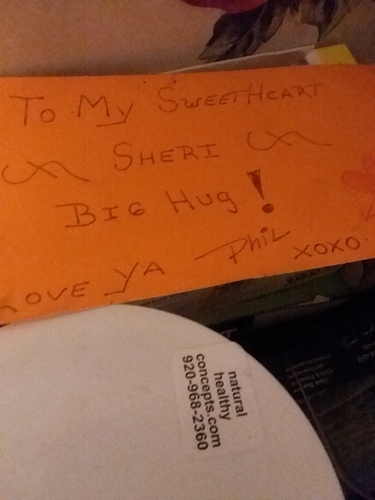 To My SweetHeart
SHERI
BIG Hug!
LOVE YA Phil xoxo
natural
healthy
concepts.com
920-968-2360